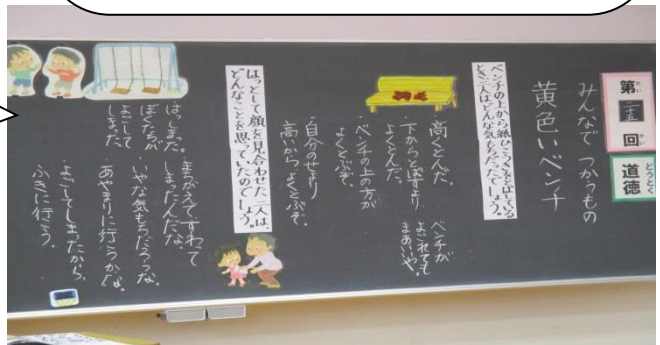 第二十五回
道徳
みんなで つかうもの
黄色いベンチ
ベンチの上から紙ひこうきをとばしている
とき二人はどんな気もちだったでしょう。
・高くとんだ。
・下からとばすより
よくとんだ。
・ベンチの上の方が
よくとぶぞ。
・自分のせより
高いから よくとぶぞ。
ベンチが
よごれても
まあいいや。
はっとして顔を見合わせた二人は、
どんなことを思っていたのでしょう。
はっ、しまった。
ぼくたちが
よごして
しまった。
・まちがえてすわって
しまったんだな。
・いやな気もちだろうな。
・あやまりに行こうかな。
・よごしてしまったから、
ふきに行こう。